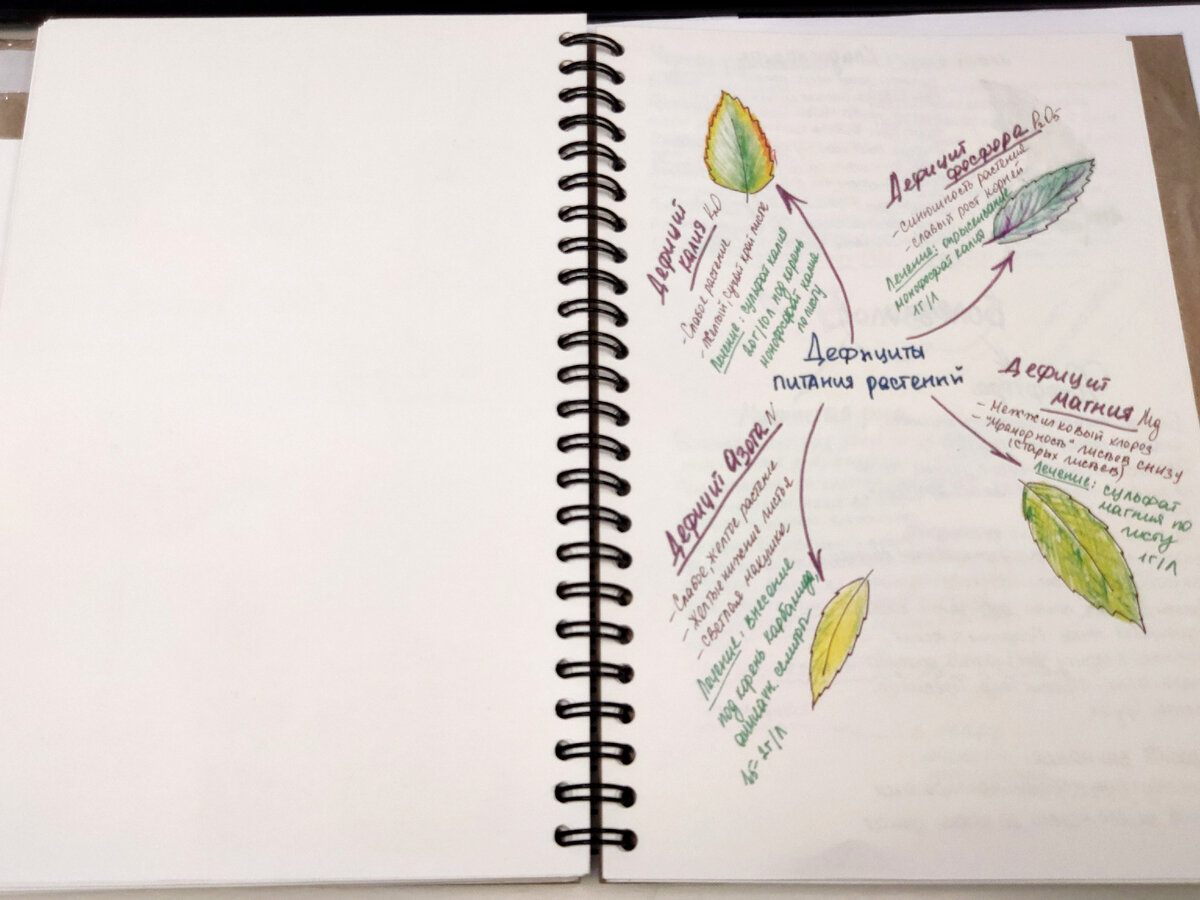 Дефициты
питания растений
Дефицит
калия K₂O
- Слабое растение
- желтый, сухой край листа
Лечение: сульфат калия
20г/10л под корень
монофосфат калия
по листу
Дефицит
фосфора P₂O₅
- синюшность растения
- слабый рост корней
Лечение: опрыскивание
монофосфат калия
1г/л
Дефицит
магния Mg
- Межжилковый хлороз
- "Мраморность" листьев снизу
(старых листьев)
Лечение: сульфат
магния по
листу
1г/л
Дефицит Азота N
- Слабое, желтое растение
- желтые нижение листья
- светлая макушка
Лечение: внесение
под корень карбамида,
селитры
1г/л